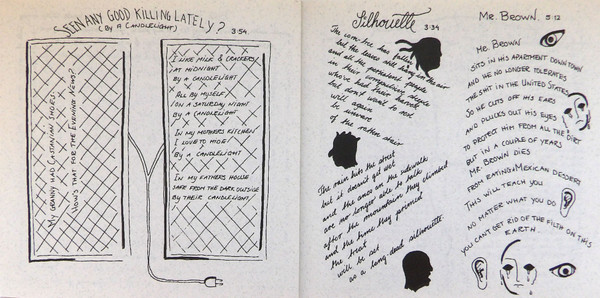 SEEN ANY GOOD KILLING LATELY?
(BY A CANDLELIGHT)
3:54.
MY GRANNY HAD CASTANIAN SHOES.
HOW'S THAT FOR THE EVENING NEWS?
I LIKE MILK & CRACKERS
AT MIDNIGHT
BY A CANDLELIGHT
ALL BY MYSELF
ON A SATURDAY NIGHT
BY A CANDLELIGHT
IN MY MOTHERS KITCHEN
I LOVE TO
BY A CANDLELIGHT
IN MY FATHERS HOUSE
SAFE FROM THE DARK OUTSIDE
BY THEIR CANDLELIGHT
Silhouette
3:34
The has fallen
but the leaves still hang in the air
and all the persistent people
in their competitive depths
who've had their havoc
but don't want to rest
will again
be survivors
of the rotten
The rain hits the street
but it doesn't get wet
and the ones on the sidewalk
are no longer able to talk
after the mountain they climbed
and the time they
the treat
will be set
as a long dead silhouette.
MR. BROWN. 5:12
MR. BROWN
SITS IN HIS APARTMENT DOWNTOWN
AND HE NO LONGER TOLERATES
THE SHIT IN THE UNITED STATES
SO HE CUTS OFF HIS EARS
AND PLUCKS OUT HIS EYES
TO PROTECT HIM FROM ALL THE DIRT
BUT IN A COUPLE OF YEARS
MR. BROWN DIES
FROM EATING A MEXICAN DESSERT
THIS WILL TEACH YOU
NO MATTER WHAT YOU DO
YOU CAN'T GET RID OF THE FILTH ON THIS
EARTH.